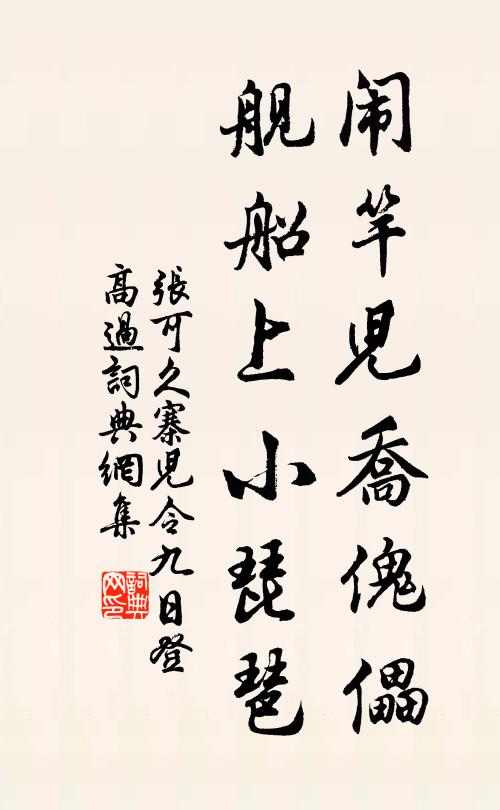 闹竿児喬傀儡
舰船上小琵琶
張可久寨児令九日登
高過詞典網集
詞典网印